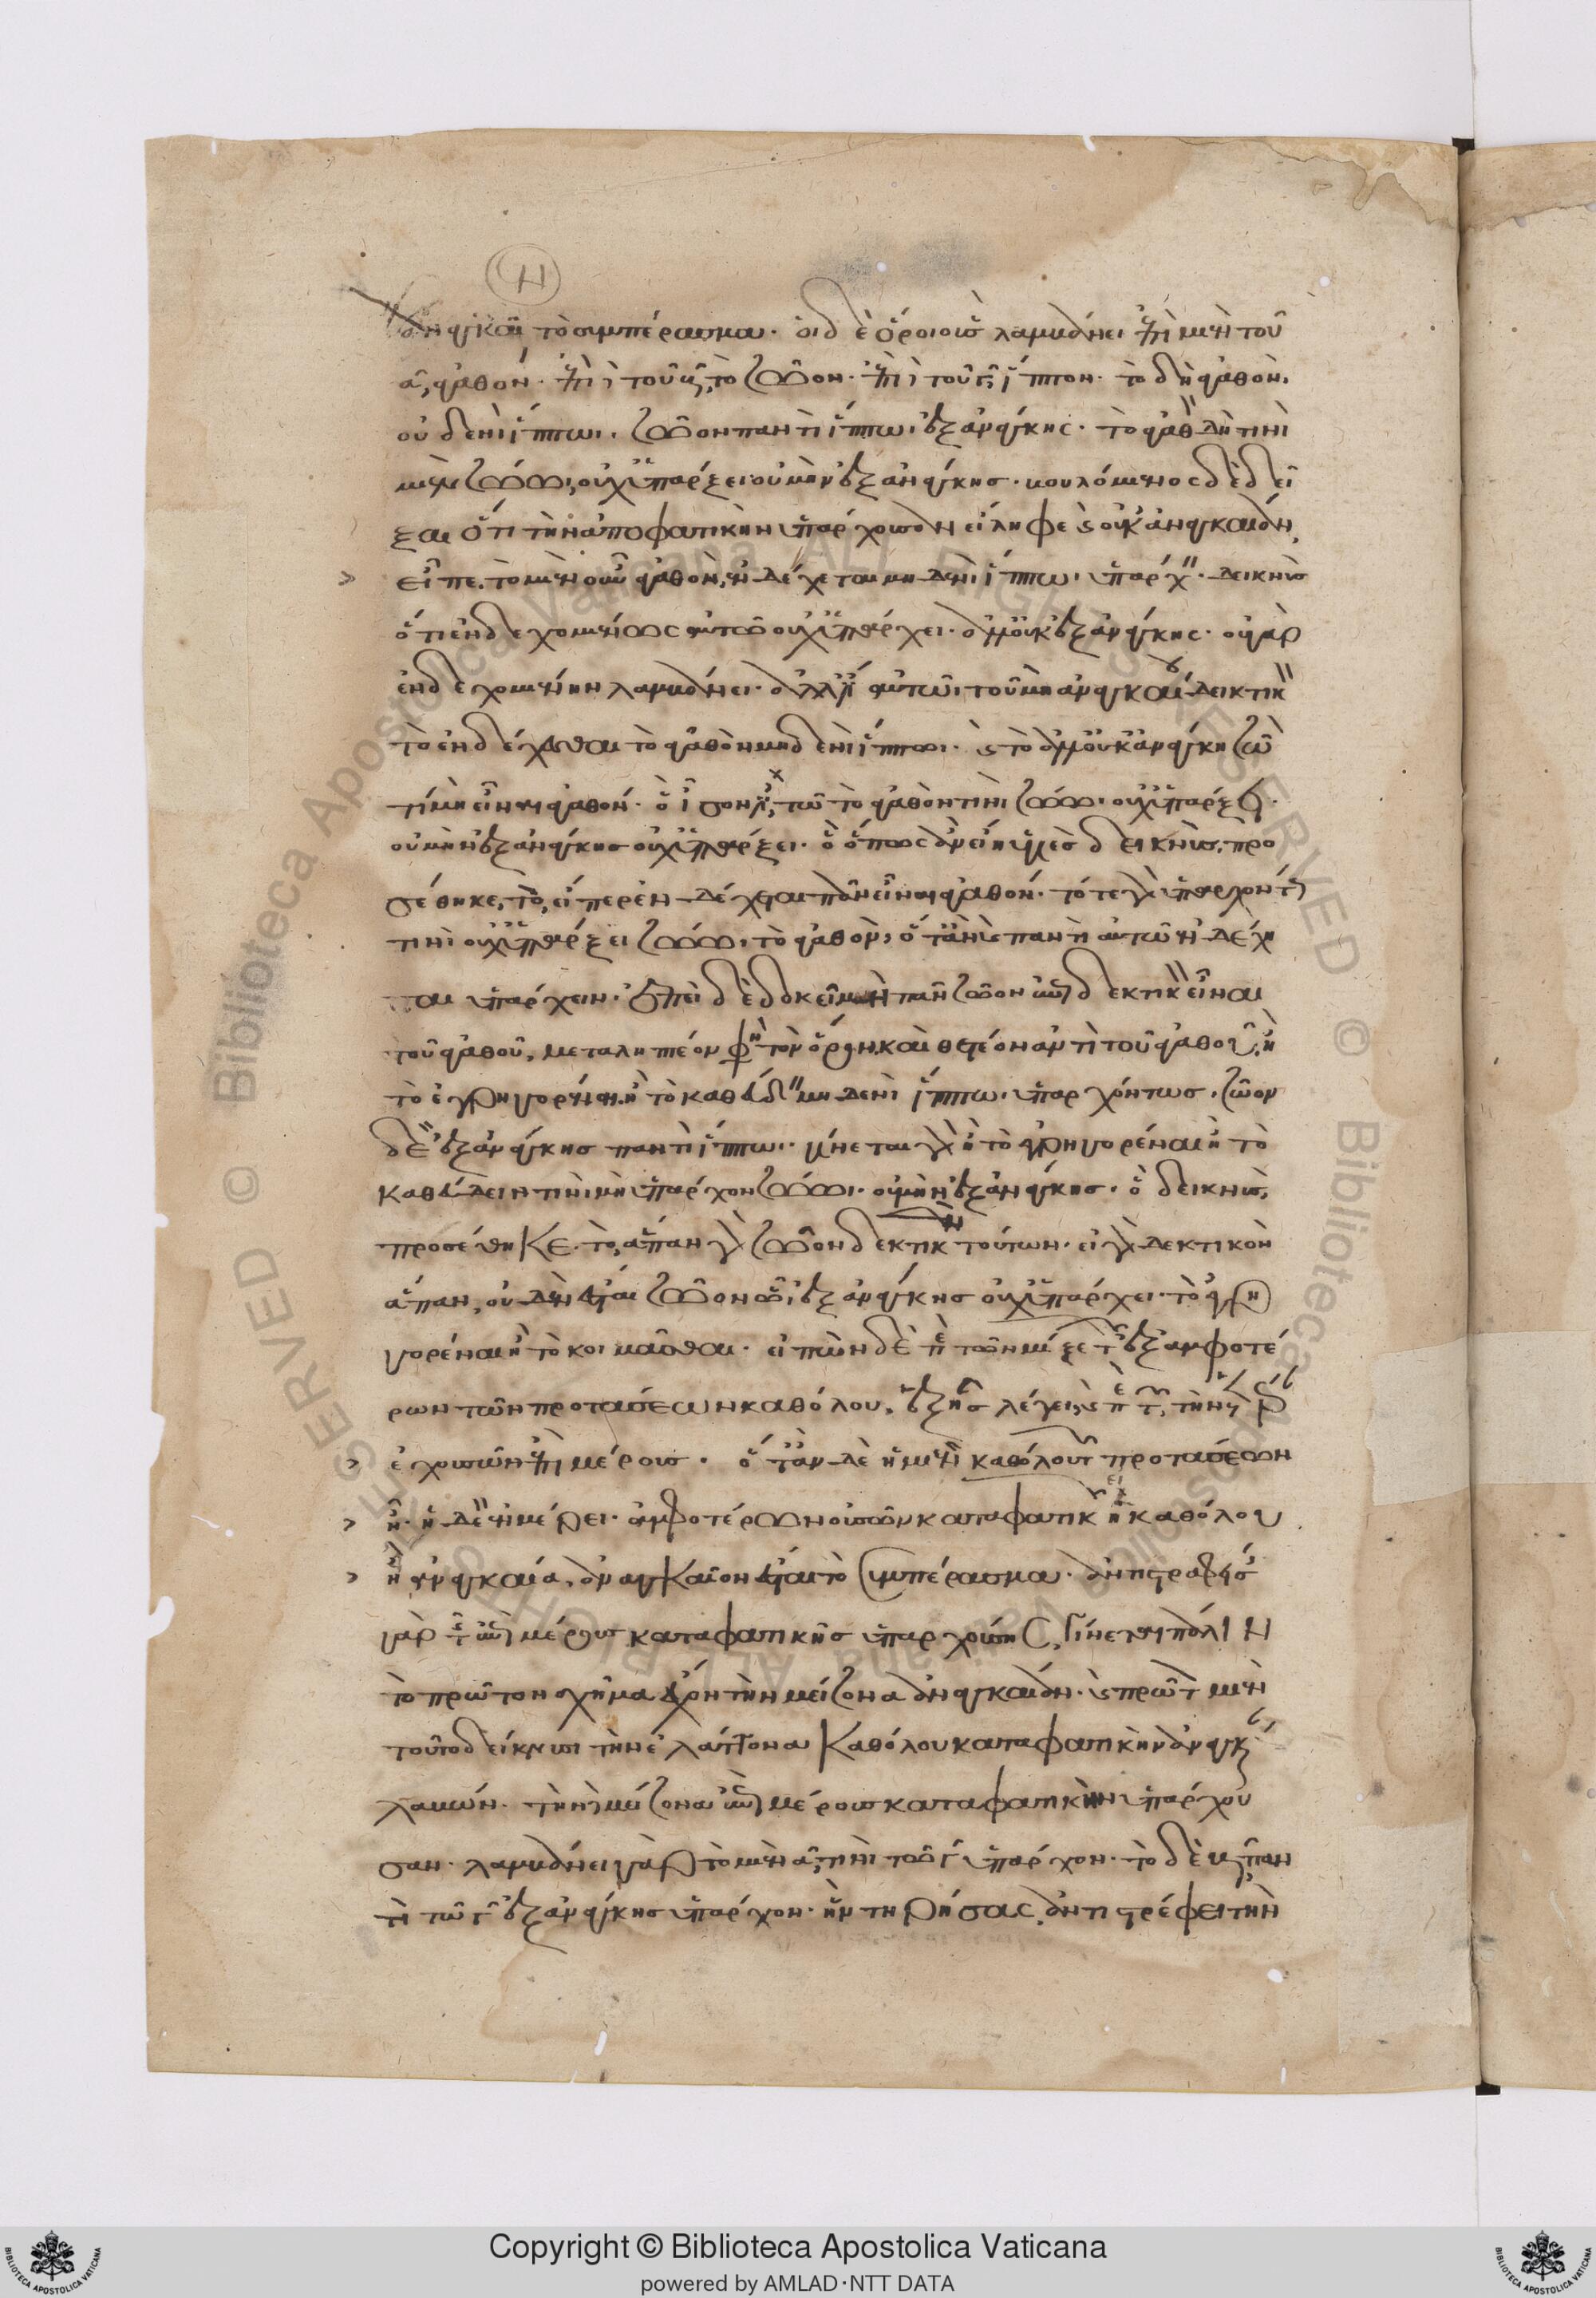 Η
ἀναγκαῖον τὸ συμπέρασμα. οἱ δὲ ὅροι οὓς λαμβάνει ἐπὶ μὲν τοῦ
α, ἀγαθόν. ἐπὶ τοῦ β, τὸ ζῶον. ἐπὶ τοῦ γ, ἵππον. τὸ δὴ ἀγαθὸν,
οὐδενὶ ἵππωι. ζῶον παντὶ ἵππωι ἐξ ἀνάγκης. τὸ ἀγαθὸν δὴ τινὶ
μὲν ζώωι, οὐχ ὑπάρξει· οὐ μὴν ἐξ ἀνάγκης. βουλόμενος δὲ δεῖ
ξαι ὅτι τὴν ἀποφατικὴν ὑπάρχουσαν εἴληφε καὶ οὐκ ἀναγκαίαν,
εἶπε. τὸ μὲν οὖν ἀγαθὸν, ἐνδέχεται μηδενὶ ἵππωι ὑπάρχειν. δεικνὺς
ὅτι ἐνδεχομένως αὐτῶ οὐχ ὑπάρχει. ἀλλ' οὐκ ἐξ ἀνάγκης. οὐ γὰρ
ἐνδεχομένην λαμβάνει. ἀλλ' ἔστι αὐτῶι τοῦ μὴ ἀναγκαίου δεικτικὸν
τὸ ἐνδέχεσθαι τὸ ἀγαθὸν μηδενὶ ἵππωι. καὶ τὸ ἀλλ' οὐκ ἀνάγκη ζῶόν
τι μὴ εἶναι ἀγαθόν. ὃ ἴσον ἐστὶ τῶ τὸ ἀγαθὸν τινὶ ζώωι οὐχ ὑπάρξει.
οὐ μὴν ἐξ ἀνάγκης οὐχ ὑπάρξει. ὃ ὅπως ἂν εἴη ἀληθὲς δεικνὺς, προ
σέθηκε, τὸ, εἴπερ ἐνδέχεται πᾶν εἶναι ἀγαθόν. τότε γὰρ ὑπαρχόντως
τινὶ οὐχ ὑπάρξει ζώωι τὸ ἀγαθὸν, ὅταν καὶ παντὶ αὐτῶ ἐνδέχη
ται ὑπάρχειν. ἐπεὶ δὲ δοκεῖ μὴ πᾶν ζῶον δεκτικὸν εἶναι
τοῦ ἀγαθοῦ, μεταληπτέον φησὶ τὸν ὅρον, καὶ θετέον ἀντὶ τοῦ ἀγαθοῦ, ἢ
τὸ ἐγρηγορέναι ἢ τὸ καθεύδειν μηδενὶ ἵππωι ὑπαρχόντως, ζῶον
δὲ ἐξ ἀνάγκης παντὶ ἵππωι. γίνεται γὰρ ἢ τὸ ἐγρηγορέναι ἢ τὸ
καθεύδειν τινὶ μὴ ὑπάρχον ζώωι. οὐ μὴν ἐξ ἀνάγκης. ὃ δεικνὺς,
προσέθηκε. τὸ, ἅπαν γὰρ ζῶον δεκτικὸν τούτων. εἰ γὰρ δεκτικὸν
ἅπαν, οὐδὲν ἔσται ζῶον ὧ ἐξ ἀνάγκης οὐχ ὑπάρχει τὸ ἐγρη
γορέναι ἢ τὸ κοιμᾶσθαι. εἰπὼν δὲ περὶ τῶν μίξεων τῶν ἐξ ἀμφοτέ
ρων τῶν προτάσεων καθόλου, ἑξῆς λέγει καὶ περὶ τῶν τὴν ἑτέραν
ἐχουσῶν ἐπὶ μέρους. ὅταν δὲ ἡ μὲν καθόλου τῶν προτάσεων
ἦ. ἡ δὲ ἐν μέρει. ἀμφοτέρων οὐσῶν κατηγορικῶν, εἰ ἡ καθόλου
ἦν ἀναγκαία, ἀναγκαῖον ἔσται τὸ συμπέρασμα. ἀντιστραφείσης
γὰρ τῆς ἐπὶ μέρους καταφατικῆς ὑπαρχούσης, γίνεται πάλιν
τὸ πρῶτον σχῆμα ἔχον τὴν μείζονα ἀναγκαίαν. καὶ πρῶτον μὲν
τοῦτο δείκνυσι τὴν ἐλάττονα καθόλου καταφατικὴν ἀναγκαίαν
λαβών. τὴν δὲ μείζονα ἐπὶ μέρους καταφατικὴν ὑπάρχου
σαν. λαμβάνει γὰρ τὸ μὲν α τινὶ τῶ γ ὑπάρχον. τὸ δὲ β παν
τὶ τῶ γ ἐξ ἀνάγκης ὑπάρχον. ἣν τηρήσας, ἀντιστρέφει τὴν
Copyright © Biblioteca Apostolica Vaticana
powered by AMLAD·NTT DATA